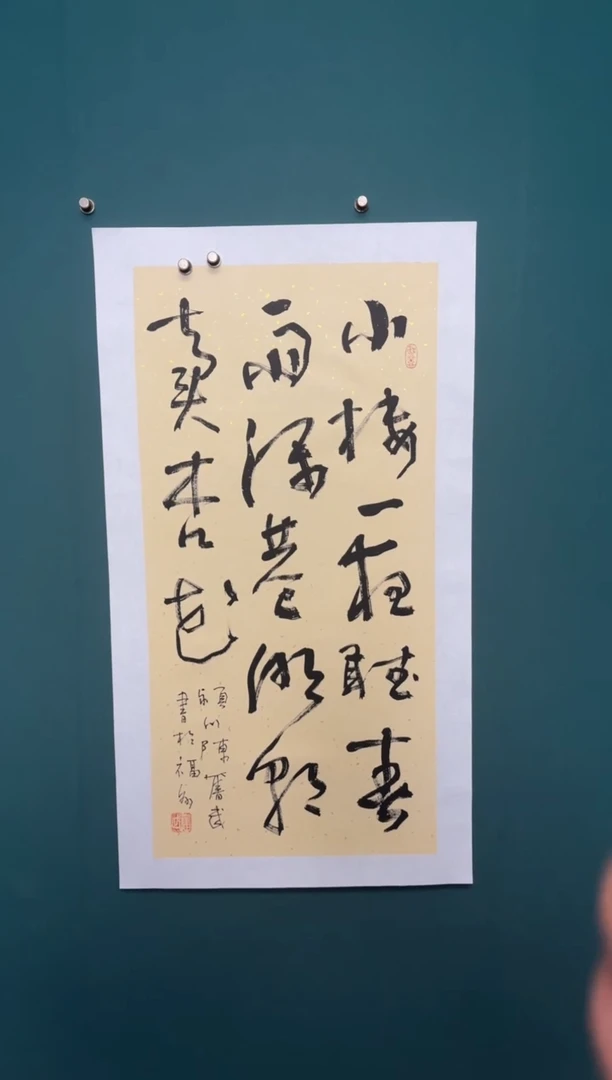 小樓一夜聽春
雨深巷明朝
賣杏花
書於福